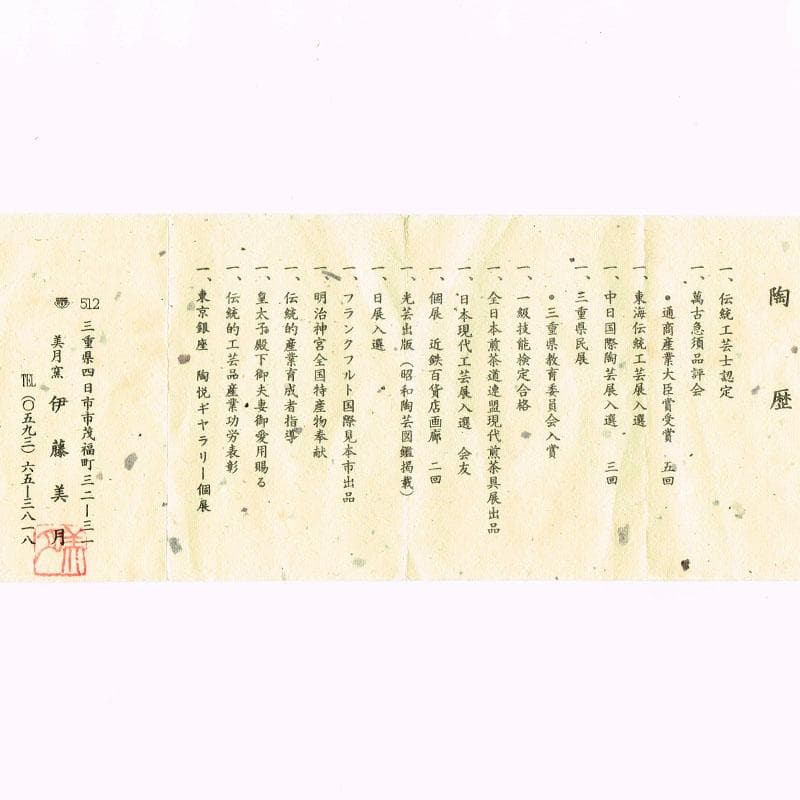 陶歴
一、伝統工芸士認定
一、萬古急須品評会
●通商産業大臣賞受賞 五回
一、東海伝統工芸展入選
一、中日国際陶芸展入選 三回
一、三重県民展
●三重県教育委員会入賞
一、一級技能検定合格
一、全日本煎茶道連盟現代煎茶具展出品
一、日本現代工芸展入選 会友
一、個展 近鉄百貨店画廊 二回
一、光芸出版(昭和陶芸図鑑掲載)
一、日展入選
一、フランクフルト国際見本市出品
一、明治神宮全国特産物奉献
一、伝統的産業育成者指導
一、皇太子殿下御夫妻御愛用賜る
一、伝統的工芸品産業功労表彰
一、東京銀座 陶悦ギヤラリー個展
512 三重県四日市市茂福町三二ー三一
美月窯 伊藤美月
TEL(〇五九三)六五ー三八一八